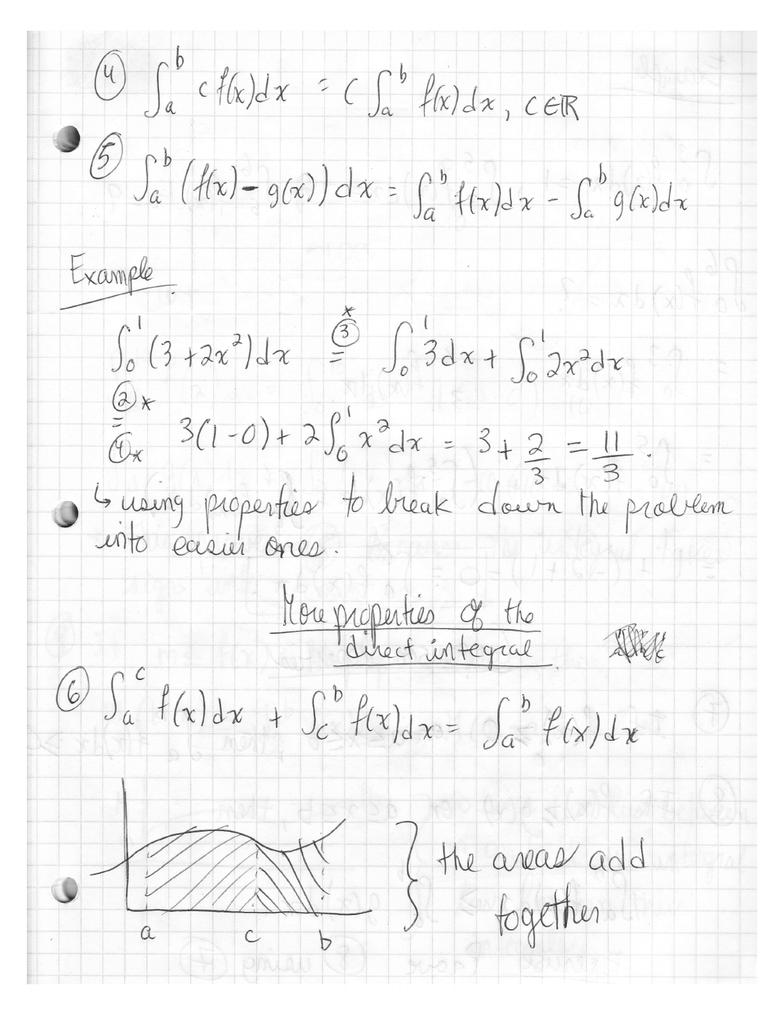 ④ ∫ₐᵇ c f(x)dx = c ∫ₐᵇ f(x)dx, c∈ℝ
⑤ ∫ₐᵇ (f(x) - g(x)) dx = ∫ₐᵇ f(x)dx - ∫ₐᵇ g(x)dx
Example
∫₀¹ (3 + 2x²)dx =^{③*} ∫₀¹ 3dx + ∫₀¹ 2x²dx
②* = ④* 3(1-0) + 2∫₀¹ x²dx = 3 + 2/3 = 11/3.
↳ using properties to break down the problem
into easier ones.
More properties of the
direct integral.
⑥ ∫ₐᶜ f(x)dx + ∫_c^b f(x)dx = ∫ₐᵇ f(x)dx
} the areas add
together
a c b